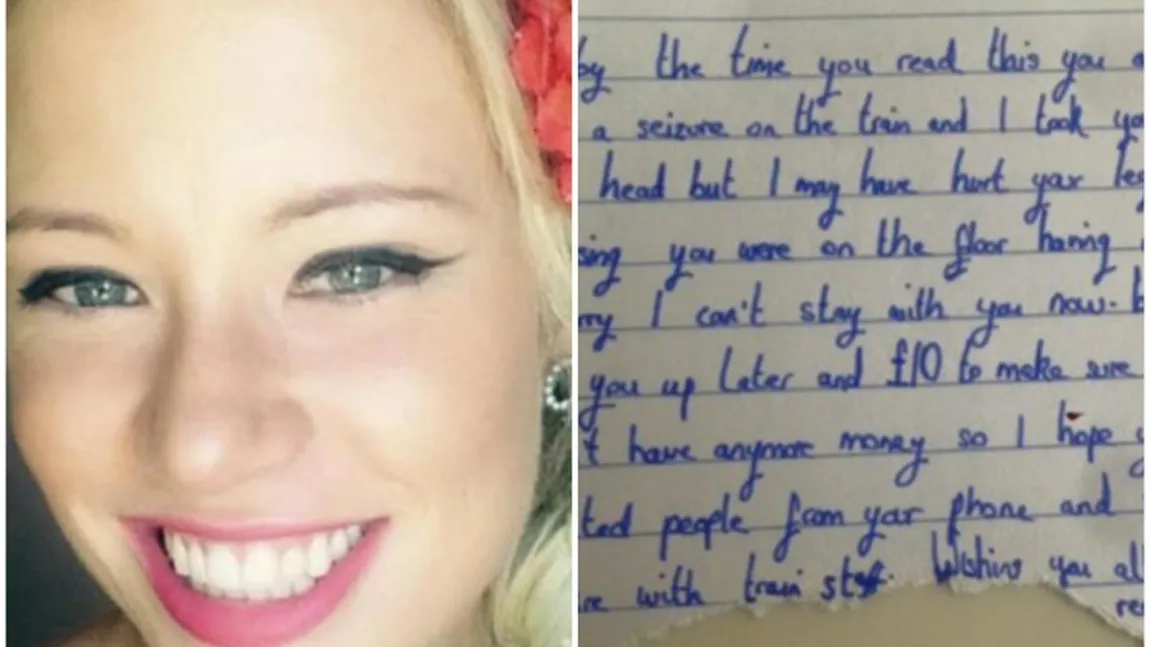 by the time you read this you
a seizure on the train and I took yo
head but I may have hurt your leg
sing you were on the floor having
rry I can't stay with you now. b
you up later and £10 to make sure
t have anymore money so I hope y
ted people from your phone and
re with train staff. Wishing you al
re